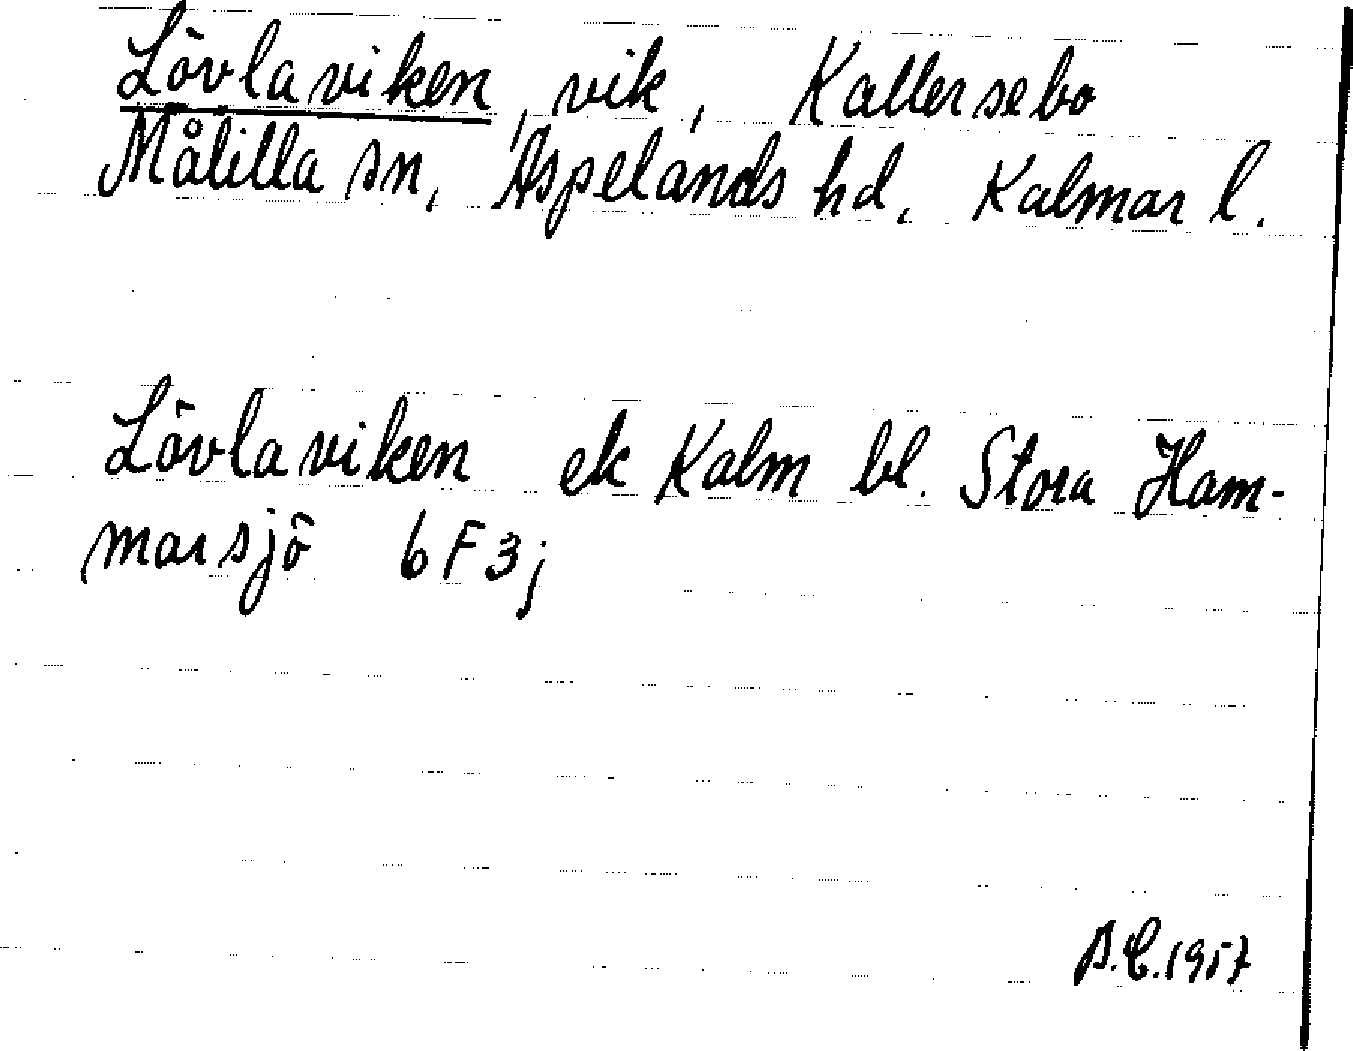 Lövlaviken, vik, Kallersebo
Målilla sn, Aspelands hd, Kalmar l.
Lövlaviken ek Kalm bl. Stora Ham-
marsjö 6F3j
1957